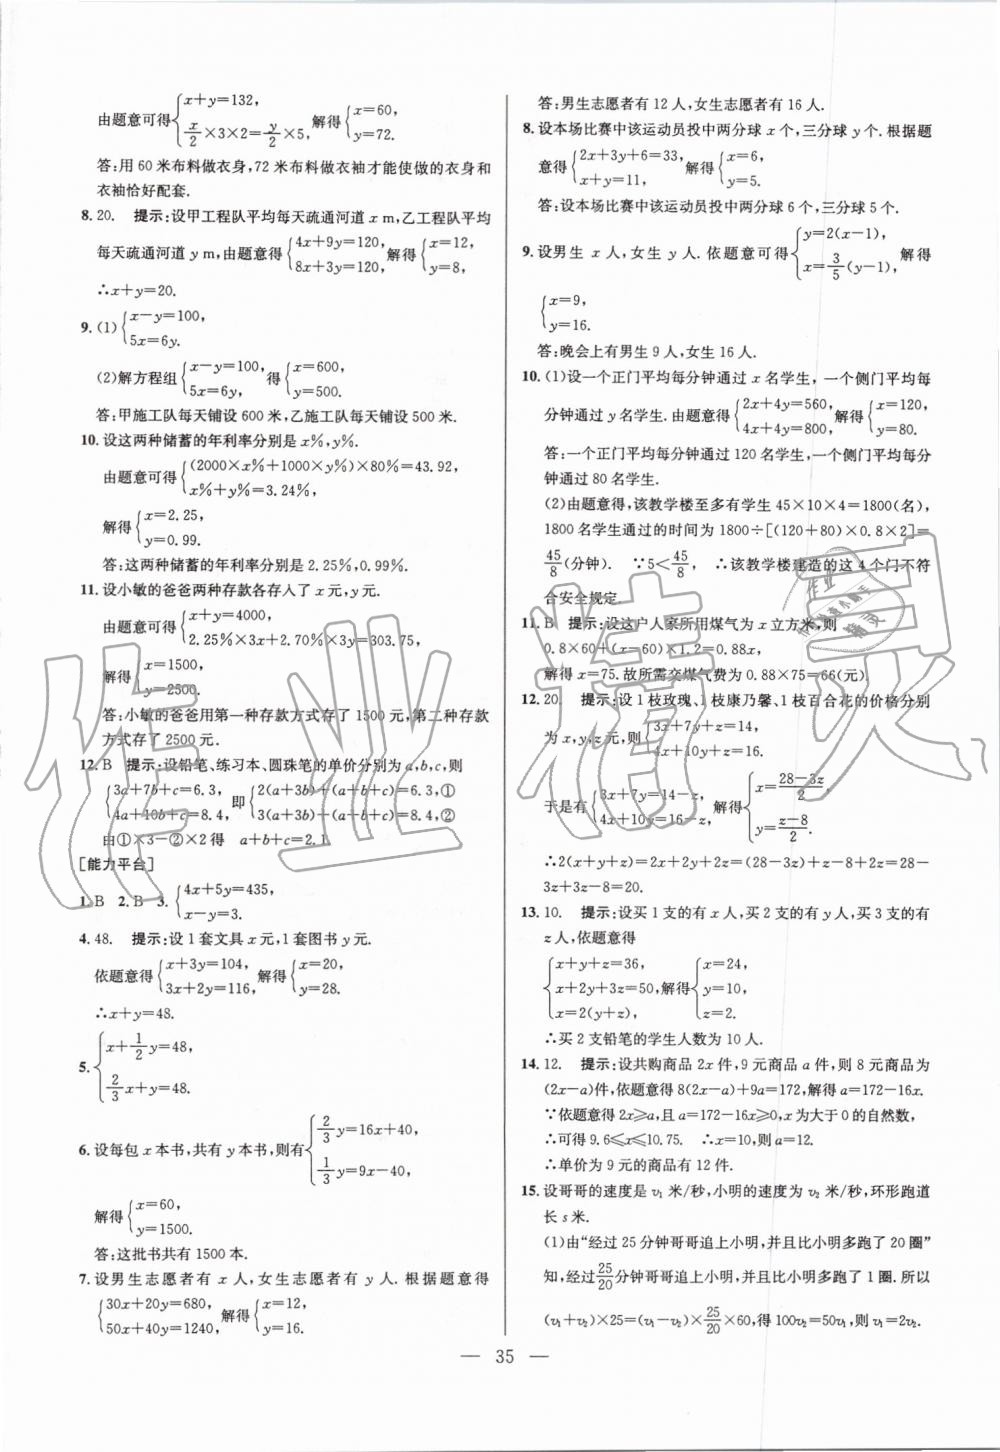 由题意可得{x+y=132, x/2×3×2=y/2×5, 解得{x=60, y=72.
答:用 60 米布料做衣身,72 米布料做衣袖才能使做的衣身和
衣袖恰好配套.
8. 20. 提示:设甲工程队平均每天疏通河道 x m,乙工程队平均
每天疏通河道 y m,由题意得{4x+9y=120, 8x+3y=120, 解得{x=12, y=8,
∴x+y=20.
9. (1){x-y=100, 5x=6y.
(2)解方程组{x-y=100, 5x=6y, 得{x=600, y=500.
答:甲施工队每天铺设 600 米,乙施工队每天铺设 500 米.
10. 设这两种储蓄的年利率分别是 x%,y%.
由题意可得{(2000×x%+1000×y%)×80%=43.92, x%+y%=3.24%,
解得{x=2.25, y=0.99.
答:这两种储蓄的年利率分别是 2.25%,0.99%.
11. 设小敏的爸爸两种存款各存入了 x 元,y 元.
由题意可得{x+y=4000, 2.25%×3x+2.70%×3y=303.75,
解得{x=1500, y=2500.
答:小敏的爸爸用第一种存款方式存了 1500 元,第二种存款
方式存了 2500 元.
12. B 提示:设铅笔、练习本、圆珠笔的单价分别为 a,b,c,则
{3a+7b+c=6.3, 4a+10b+c=8.4, 即{2(a+3b)+(a+b+c)=6.3,① 3(a+3b)+(a+b+c)=8.4,②
由①×3-②×2得 a+b+c=2.1.
[能力平台]
1. B 2. B 3. {4x+5y=435, x-y=3.
4. 48. 提示:设 1 套文具 x 元,1 套图书 y 元.
依题意得{x+3y=104, 3x+2y=116, 解得{x=20, y=28.
∴x+y=48.
5. {x+1/2y=48, 2/3x+y=48.
6. 设每包 x 本书,共有 y 本书,则有{2/3y=16x+40, 1/3y=9x-40,
解得{x=60, y=1500.
答:这批书共有 1500 本.
7. 设男生志愿者有 x 人,女生志愿者有 y 人. 根据题意得
{30x+20y=680, 50x+40y=1240, 解得{x=12, y=16.
答:男生志愿者有 12 人,女生志愿者有 16 人.
8. 设本场比赛中该运动员投中两分球 x 个,三分球 y 个. 根据题
意得{2x+3y+6=33, x+y=11, 解得{x=6, y=5.
答:设本场比赛中该运动员投中两分球 6 个,三分球 5 个.
9. 设男生 x 人,女生 y 人. 依题意可得{y=2(x-1), x=3/5(y-1), 解得
{x=9, y=16.
答:晚会上有男生 9 人,女生 16 人.
10. (1)设一个正门平均每分钟通过 x 名学生,一个侧门平均每
分钟通过 y 名学生. 由题意得{2x+4y=560, 4x+4y=800, 解得{x=120, y=80.
答:一个正门平均每分钟通过 120 名学生,一个侧门平均每分
钟通过 80 名学生.
(2)由题意得,该教学楼至多有学生 45×10×4=1800(名),
1800 名学生通过的时间为 1800÷[(120+80)×0.8×2]=
45/8(分钟). ∵5<45/8, ∴该教学楼建造的这 4 个门不符
合安全规定.
11. B 提示:设这户人家所用煤气为 x 立方米,则
0.8×60+(x-60)×1.2=0.88x,
解得 x=75. 故所需交煤气费为 0.88×75=66(元).
12. 20. 提示:设 1 枝玫瑰、1 枝康乃馨、1 枝百合花的价格分别
为 x,y,z 元,则{3x+7y+z=14, 4x+10y+z=16.
于是有{3x+7y=14-z, 4x+10y=16-z, 解得{x=(28-3z)/2, y=(z-8)/2.
∴2(x+y+z)=2x+2y+2z=(28-3z)+z-8+2z=28-
3z+z-8+2z=20.
13. 10. 提示:设买 1 支的有 x 人,买 2 支的有 y 人,买 3 支的有
z 人,依题意得
{x+y+z=36, x+2y+3z=50, x=2(y+z), 解得{x=24, y=10, z=2.
∴买 2 支铅笔的学生人数为 10 人.
14. 12. 提示:设共购商品 2x 件,9 元商品 a 件,则 8 元商品为
(2x-a)件,依题意得 8(2x-a)+9a=172,解得 a=172-16x.
∵依题意得 2x≥a,且 a=172-16x≥0,x 为大于 0 的自然数,
∴可得 9.6≤x≤10.75. ∴x=10,则 a=12.
∴单价为 9 元的商品有 12 件.
15. 设哥哥的速度是 v₁ 米/秒,小明的速度为 v₂ 米/秒,环形跑道
长 s 米.
(1)由“经过 25 分钟哥哥追上小明,并且比小明多跑了 20 圈”
知,经过25/20分钟哥哥追上小明,并且比小明多跑了 1 圈. 所以
(v₁+v₂)×25=(v₁-v₂)×25/20×60,得 100v₂=50v₁,则 v₁=2v₂.
— 35 —
作业精灵